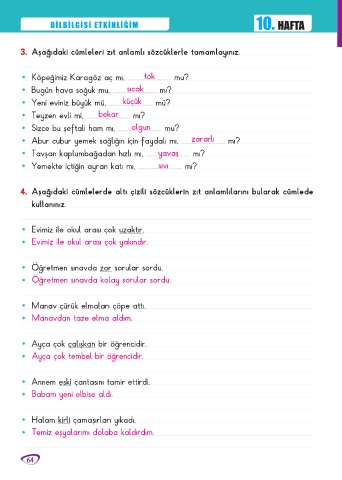 DİLBİLGİSİ ETKİNLİĞİM
10. HAFTA
3. Aşağıdaki cümleleri zıt anlamlı sözcüklerle tamamlayınız.
• Köpeğimiz Karagöz aç mı, tok mu?
• Bugün hava soğuk mu, sıcak mı?
• Yeni eviniz büyük mü, küçük mü?
• Teyzen evli mi, bekar mı?
• Sizce bu şeftali ham mı, olgun mu?
• Abur cubur yemek sağlığın için faydalı mı, zararlı mı?
• Tavşan kaplumbağadan hızlı mı, yavaş mı?
• Yemekte içtiğin ayran katı mı, sıvı mı?
4. Aşağıdaki cümlelerde altı çizili sözcüklerin zıt anlamlılarını bularak cümlede
kullanınız.
• Evimiz ile okul arası çok uzaktır.
• Evimiz ile okul arası çok yakındır.
• Öğretmen sınavda zor sorular sordu.
• Öğretmen sınavda kolay sorular sordu.
• Manav çürük elmaları çöpe attı.
• Manavdan taze elma aldım.
• Ayça çok çalışkan bir öğrencidir.
• Ayça çok tembel bir öğrencidir.
• Annem eski çantasını tamir ettirdi.
• Babam yeni elbise aldı.
• Halam kirli çamaşırları yıkadı.
• Temiz eşyalarımı dolaba kaldırdım.
64